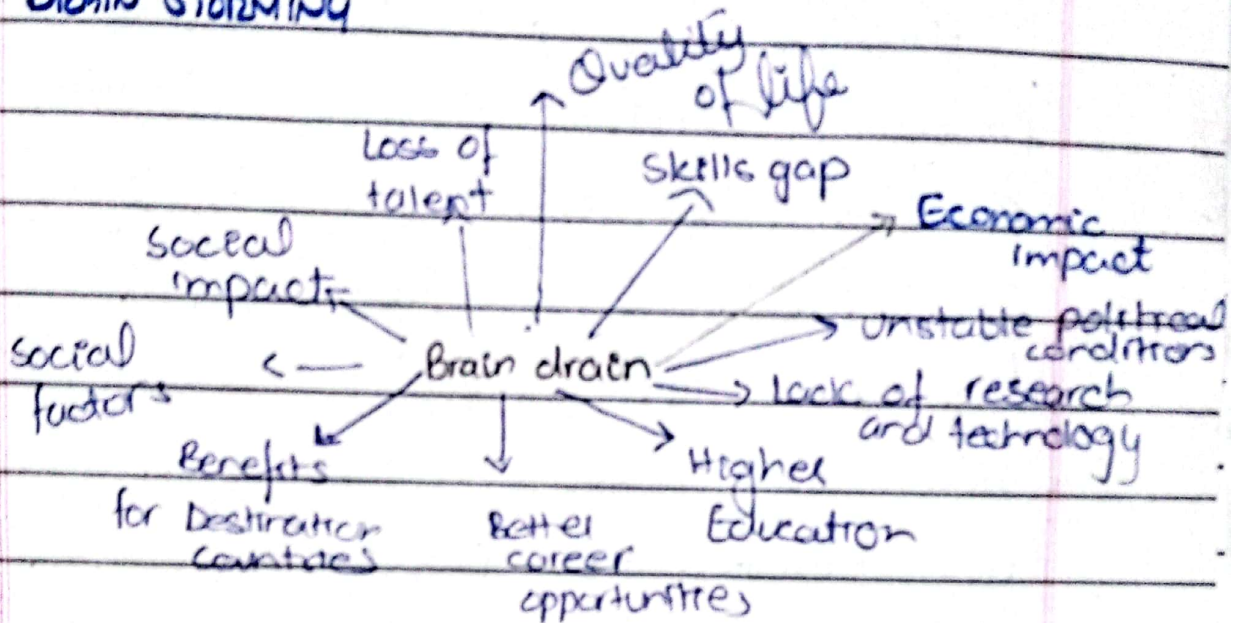 BRAIN STORMING
Quality
of life
Loss of
talent
Skills gap
Economic
impact
Social
impact
Unstable political
conditions
Social
factors
Brain drain
Lack of research
and technology
Benefits
for Destination
Countries
Better
career
opportunities
Higher
Education